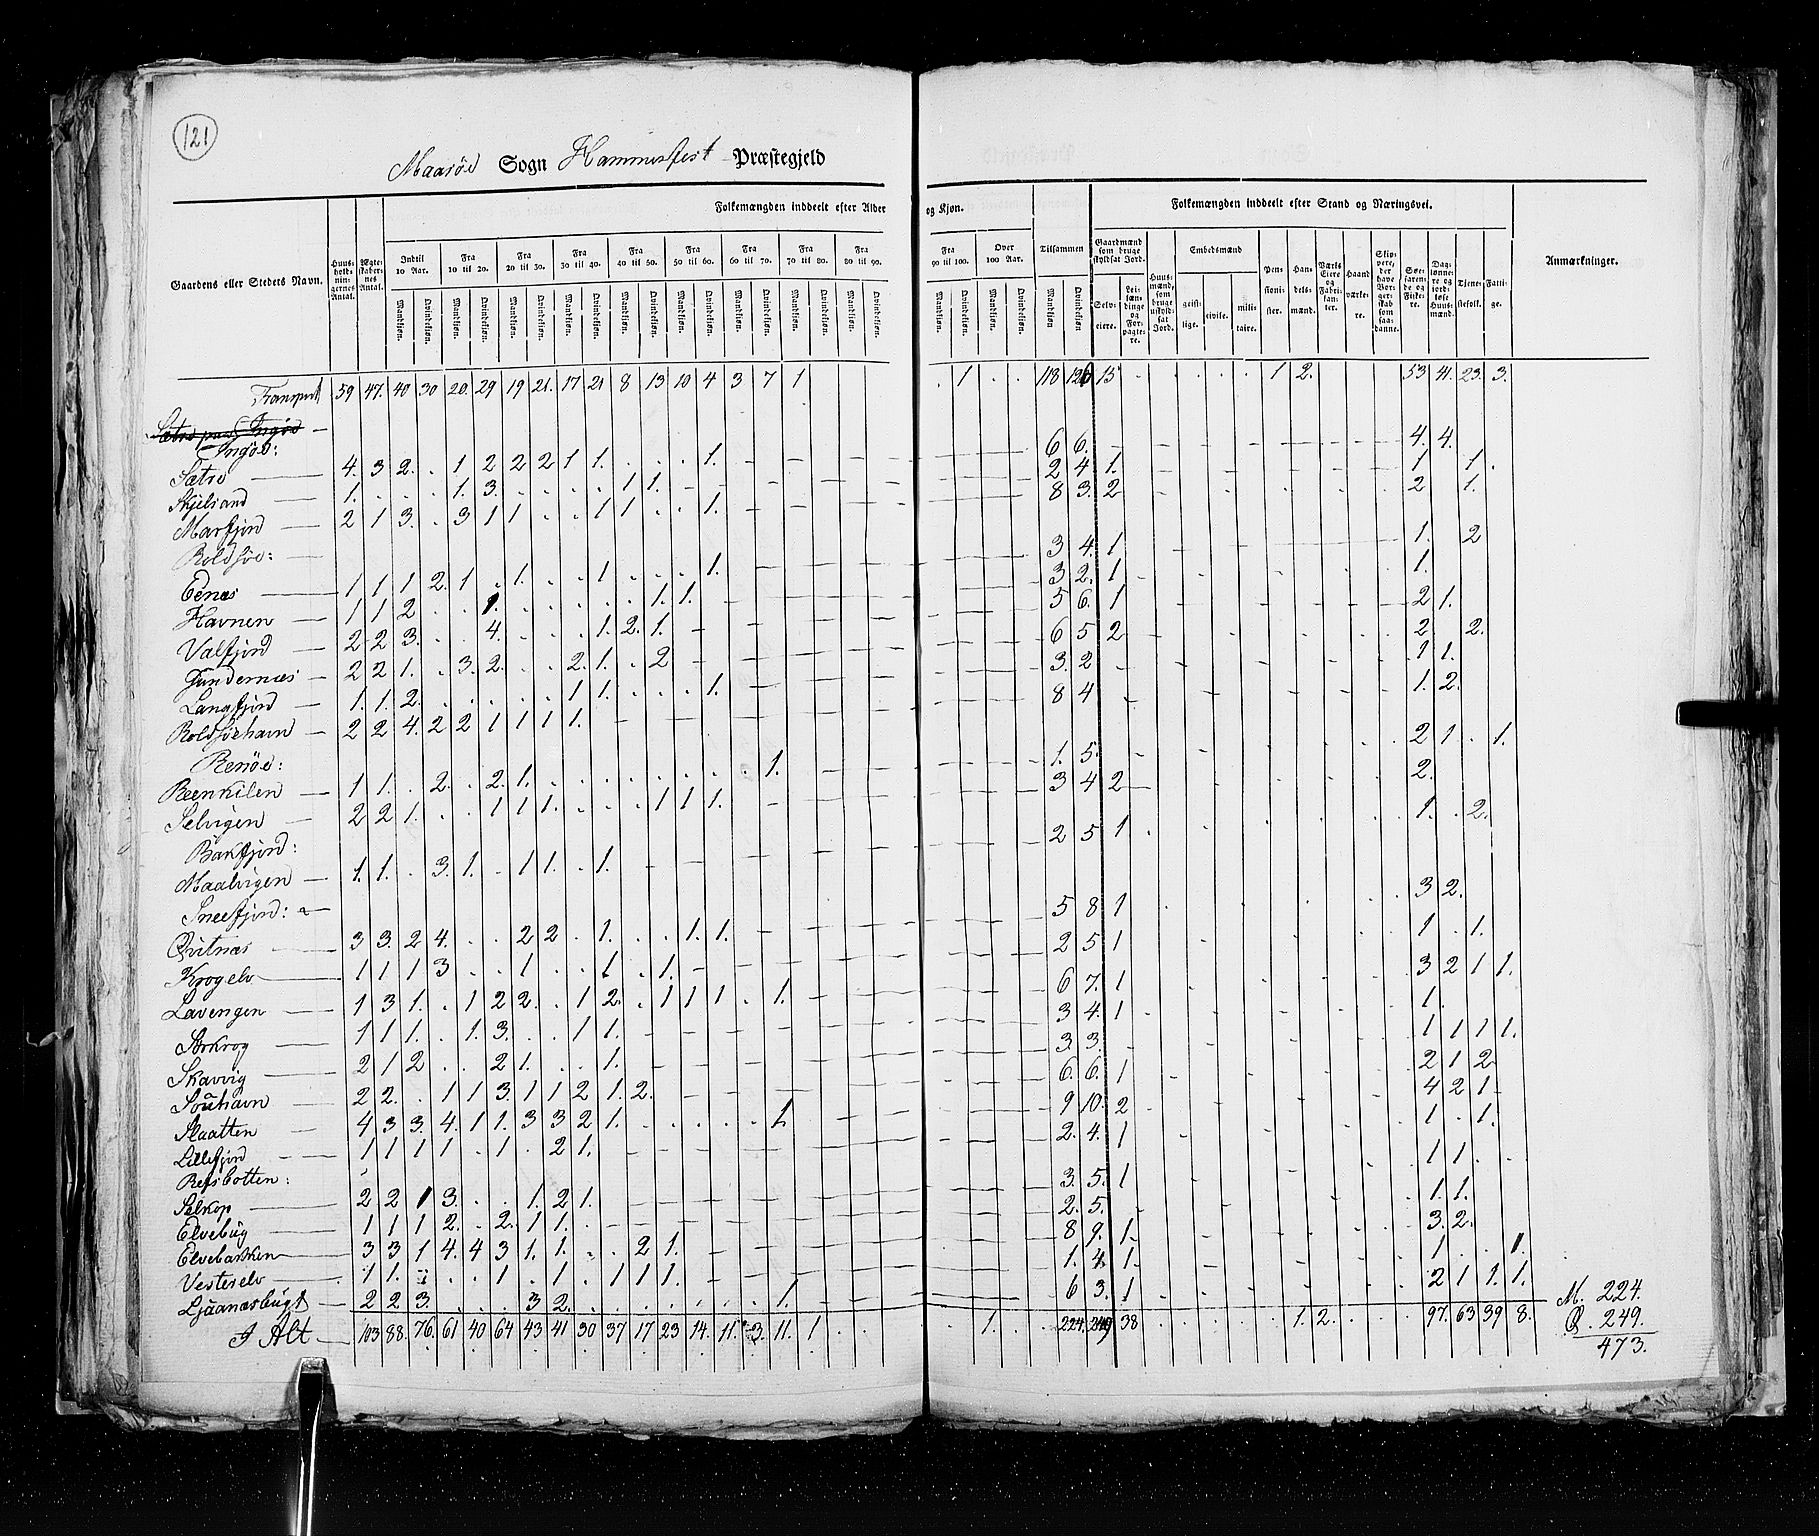 121
Maasöe Sogn Hammerfest Præstegjeld
Folkemængden inddeelt efter Alder og Kjøn.
Folkemængden inddeelt efter Stand og Næringsvei.
Gaardens eller Stedets Navn.
Huusholdningernes Antal.
Ægteskabernes Antal.
Indtil 10 Aar.
Fra 10 til 20.
Fra 20 til 30.
Fra 30 til 40.
Fra 40 til 50.
Fra 50 til 60.
Fra 60 til 70.
Fra 70 til 80.
Fra 80 til 90.
Fra 90 til 100.
Over 100 Aar.
Tilsammen
Mandkjøn. Qvindekjøn.
Gaardmænd som bruge skyldsat Jord.
Selveiere.
Leilændinge og Forpagtere.
Huusmænd, som bruge uskyldsat Jord.
Embedsmænd
geistlige.
civile.
militaire.
Pensionister.
Handelsmænd.
Værks Eiere og Fabrikanter.
Haandværkere.
Skippere, der have Borgerskab som saadanne.
Søefarende og Fiskere.
Daglønnere og jordløse Huusmænd.
Tjenestefolk.
Fattige.
Anmærkninger.
Transport 59 47. 40 30 20. 29 19 21. 17 21 8 13 10 4 3 7 1 . 1 . . 118 126 15 . . . . . 1 2. 53 41. 23. 3.
Ingöe:
Sætre 4. 3 2. . 1 2 2 2 1 1. . . . 1. 6 6. 4. 4.
Skjelsand 1. . . . 1. 3. . . . . 1 1. 2 4 1. 1 1.
Marfjord 2 1 3. . 3 1 1 . . 1 1 . . 1. 8 3. 2 2 1.
Roldsöe:
Eenæs 1 1 1 2. 1 . 1. . . 1 . . . 1. 3 4. 1 1. 2
Havnen 1 1 2 . . 1. . . . . . 1. 1. 3 2. 1 1.
Valfjord 2 2 3. . . 4. . . . 1. 2. 1. 5 6. 1 2 1.
Gundernæs 2 2 1. . 3. 2. . . 2. 1. . 2 6 5 2 2 2.
Langfjord 1. 1. 2. . . . . . 1 1. . . . 1. 3. 2 1 1.
Roldsöehavn 2 2 4. 2 2 1 1 1 1. 8 4 1. 2.
Renöe:
Reenkilen 1 1. . 2. . 2. 1. . . . . . . . . 1. 1. 5. 2 1 . 1.
Selvigen 2 2 1. . . 1 1 1. . . . 1 1 1. 3 4 2 2.
Bakfjord:
Maalvigen 1. 1. . 3. 1. . 1 1. . 1. 2 5 1 1. . 2.
Sneefjord:
Qvitnæs 3 3. 2 4. . . 2 2 . 1. . . 1. 1. 5 8 1 3 2.
Krogelv 1 1 1 3 . . 1 . . 1 . 1. 2 5 1 1 . 1.
Lavengen 1 3 1. . 1 2 2. . 1 2. . 1 1 1 . 1. 6 7. 1 3 2 1 1.
Storkrog 1 1 1. . 1. 3. . . 1 1. 3 4. 1 1.
Skavvig 2 1 2 . . 2 1. . . 1. 3. 3. 1 1 1 1.
Souhavn 2 2. . 1 1 3. 1 1 2 1. 2. 6. 6. 1 2 1 2
Slaatten 4. 3 3. 4. 1 1. 3 3 2 1. . . . . . 1. 9 10. 2 4 2 1
Lillefjord 1 1 1 1 . 1 . 2 1. 2. 4. 1 1 . 1.
Refsbotten:
Selkop 2 2 1 3. . . 1. 2 1. 3. 5. 1 1 1. .
Elvebug 1 1 1 2. . 2. 1 1. 2. 5. 1. 1.
Elvebakken 3 3 1 4. 4 3 1. 1. . . 2 1. 8 9. 1. 3. 2.
Vesterelv 1 1. . . . 1 . 1. . 1 1 1. 1. 4. 1. 1 . . 1.
2 2 3. . . . 3 2. . . . . . . . 1. 6 3. 1 2 1 1. 1.
I Alt 103 88. 76. 61 40 64 43 41 30 37 17 23 14. 11. 3. 11. 1 1. 224. 249 38 1. 2. 97. 63 39 8.
M. 224.
Q. 249.
473.